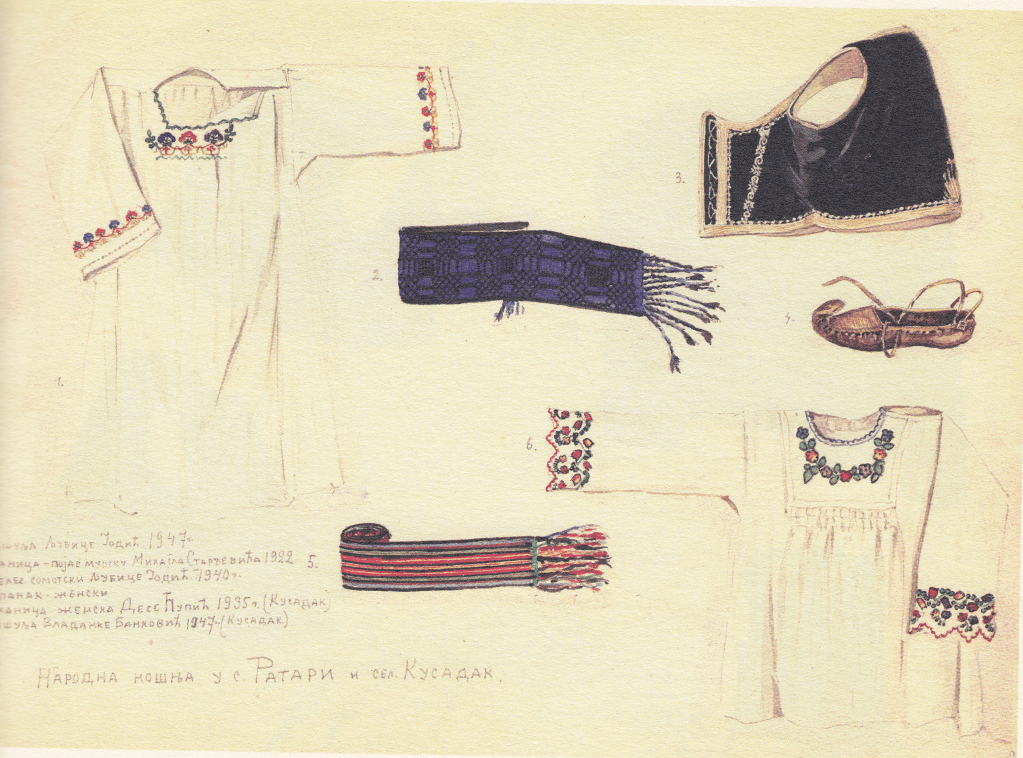 1.
2.
3.
4.
5.
6.
шуља Љубице Јодић 1947г.
аница - појас мушки Михајла Старчевића 1922
елек сомотски Љубице Јодић. 1940г.
панак - женски
каница женска Десе Пупић 1935г. (Кусадак)
шуља Владанке Банковић 1947. (Кусадак)
Народна ношња у с. Ратари и сел. Кусадак.